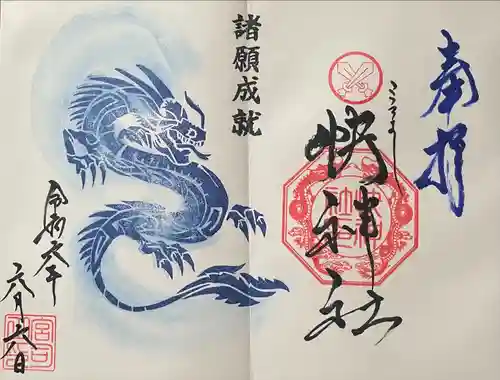 奉拝
快神社
諸願成就
令和六年
六月六日